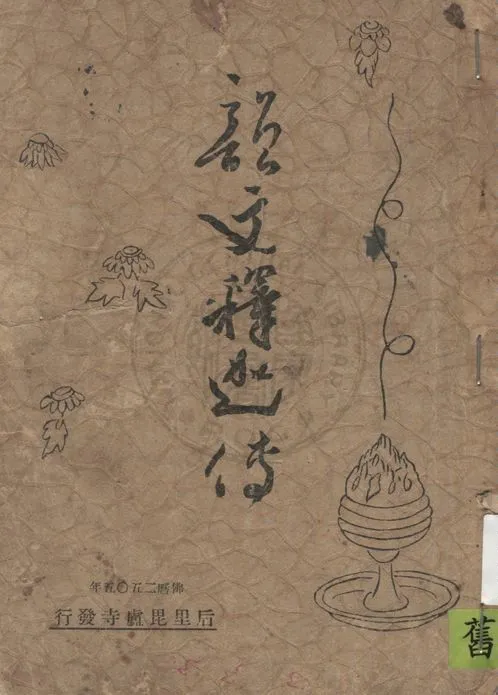 韵文釋迦傳
佛曆二五〇五年
后里毘盧寺發行
舊